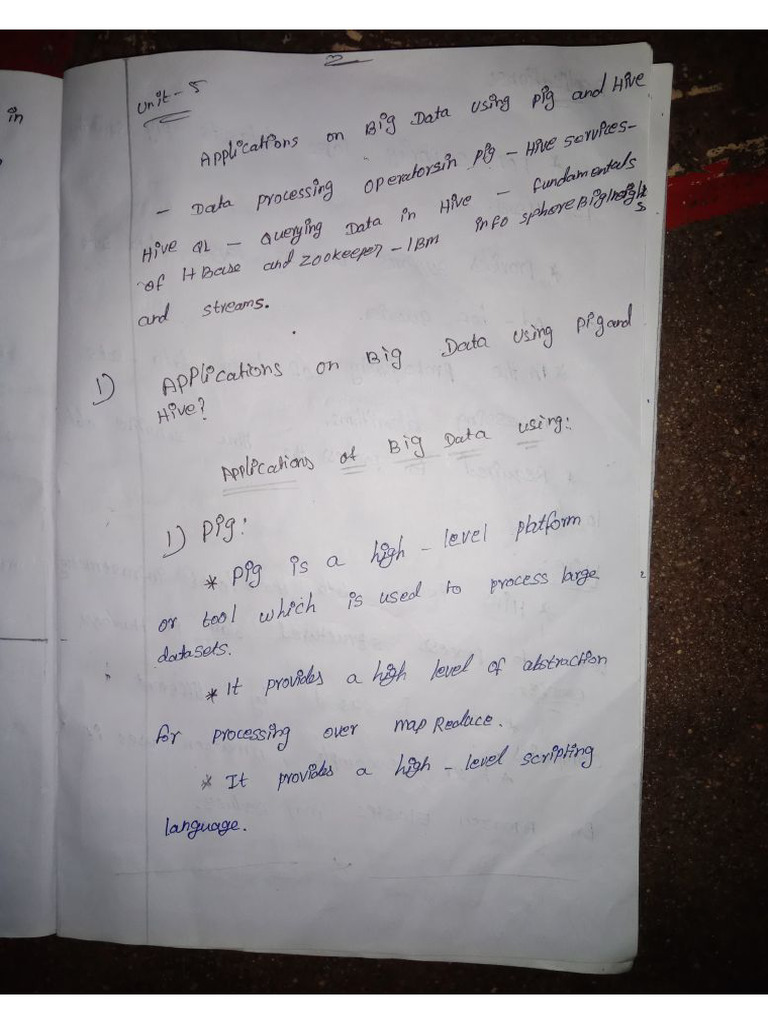 in
2
Unit - 5
Applications on Big Data using Pig and Hive
- Data processing operatorsin Pig - Hive services-
Hive QL - Querying Data in Hive - fundamentals
of HBase and Zookeeper - IBM info sphere BigInsights
and streams.
1) Applications on Big Data using Pig and
Hive?
Applications of Big Data using:
1) Pig:
* Pig is a high - level platform
or tool which is used to process large
datasets.
* It provides a high level of abstraction
for processing over mapReduce.
* It provides a high - level scripting
language.